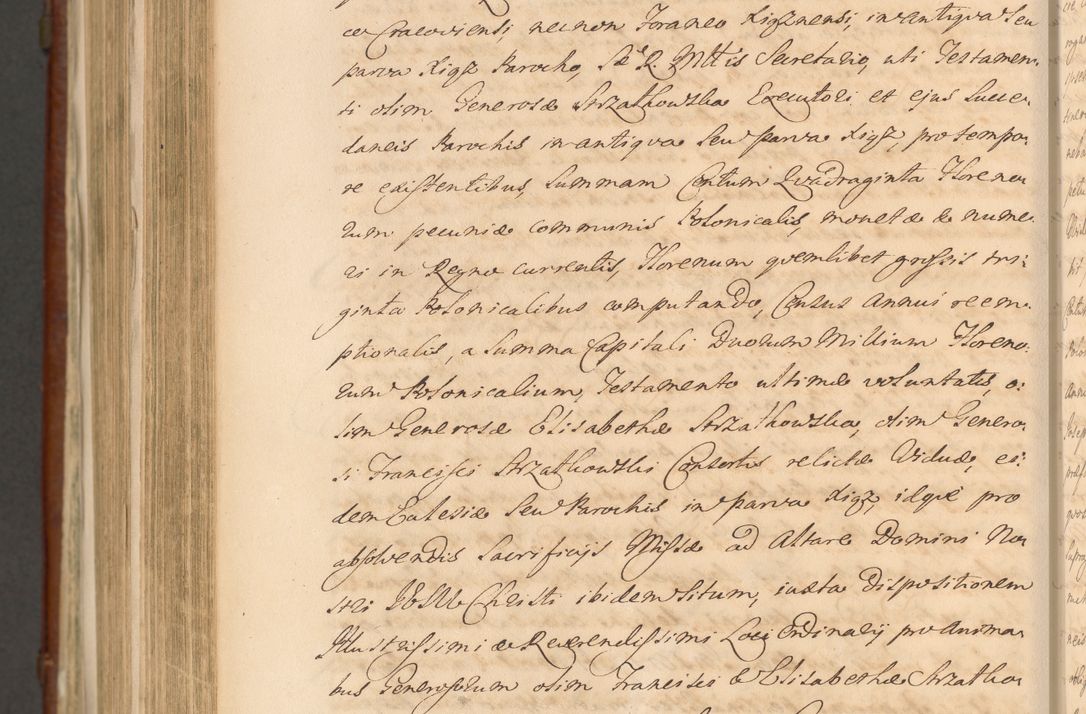 co Cracoviensi, necnon Foraneo Xigznensi, in antiqua Seu
parva Xigz Parocho, S. R. Mttis Secretario, uti Testamen-
ti olim Generosæ Strzałkowska Executori et ejus Succe-
daneis Parochis in antiqua Seu parva Xigz, pro tempo-
re existentibus, Summam Centum Quadraginta Floreno-
rum pecuniæ communis Polonicalis, monetæ & nume-
ri in Regno currentis, Florenum quemlibet grossis tri-
ginta Polonicalibus computando, Census Annui reem-
ptionalis, a Summa Capitali Duorum Millium Floreno-
rum Polonicalium, Testamento ultimæ voluntatis, o-
lim Generosæ Elisabethæ Strzałkowska, olim Genero-
si Francisci Strzałkowski Consortis relictæ Viduæ, ei-
dem Ecclesiæ Seu Parochis in parva Xigz, idque pro
absolvendis Sacrificijs Missæ ad Altare Domini No-
stri IESU Christi ibidem Situm, iuxta Dispositionem
Illustrissimi & Reverendissimi Loci Ordinarij pro Anima-
bus Generosorum olim Francisci & Elisabethæ Strzałko-